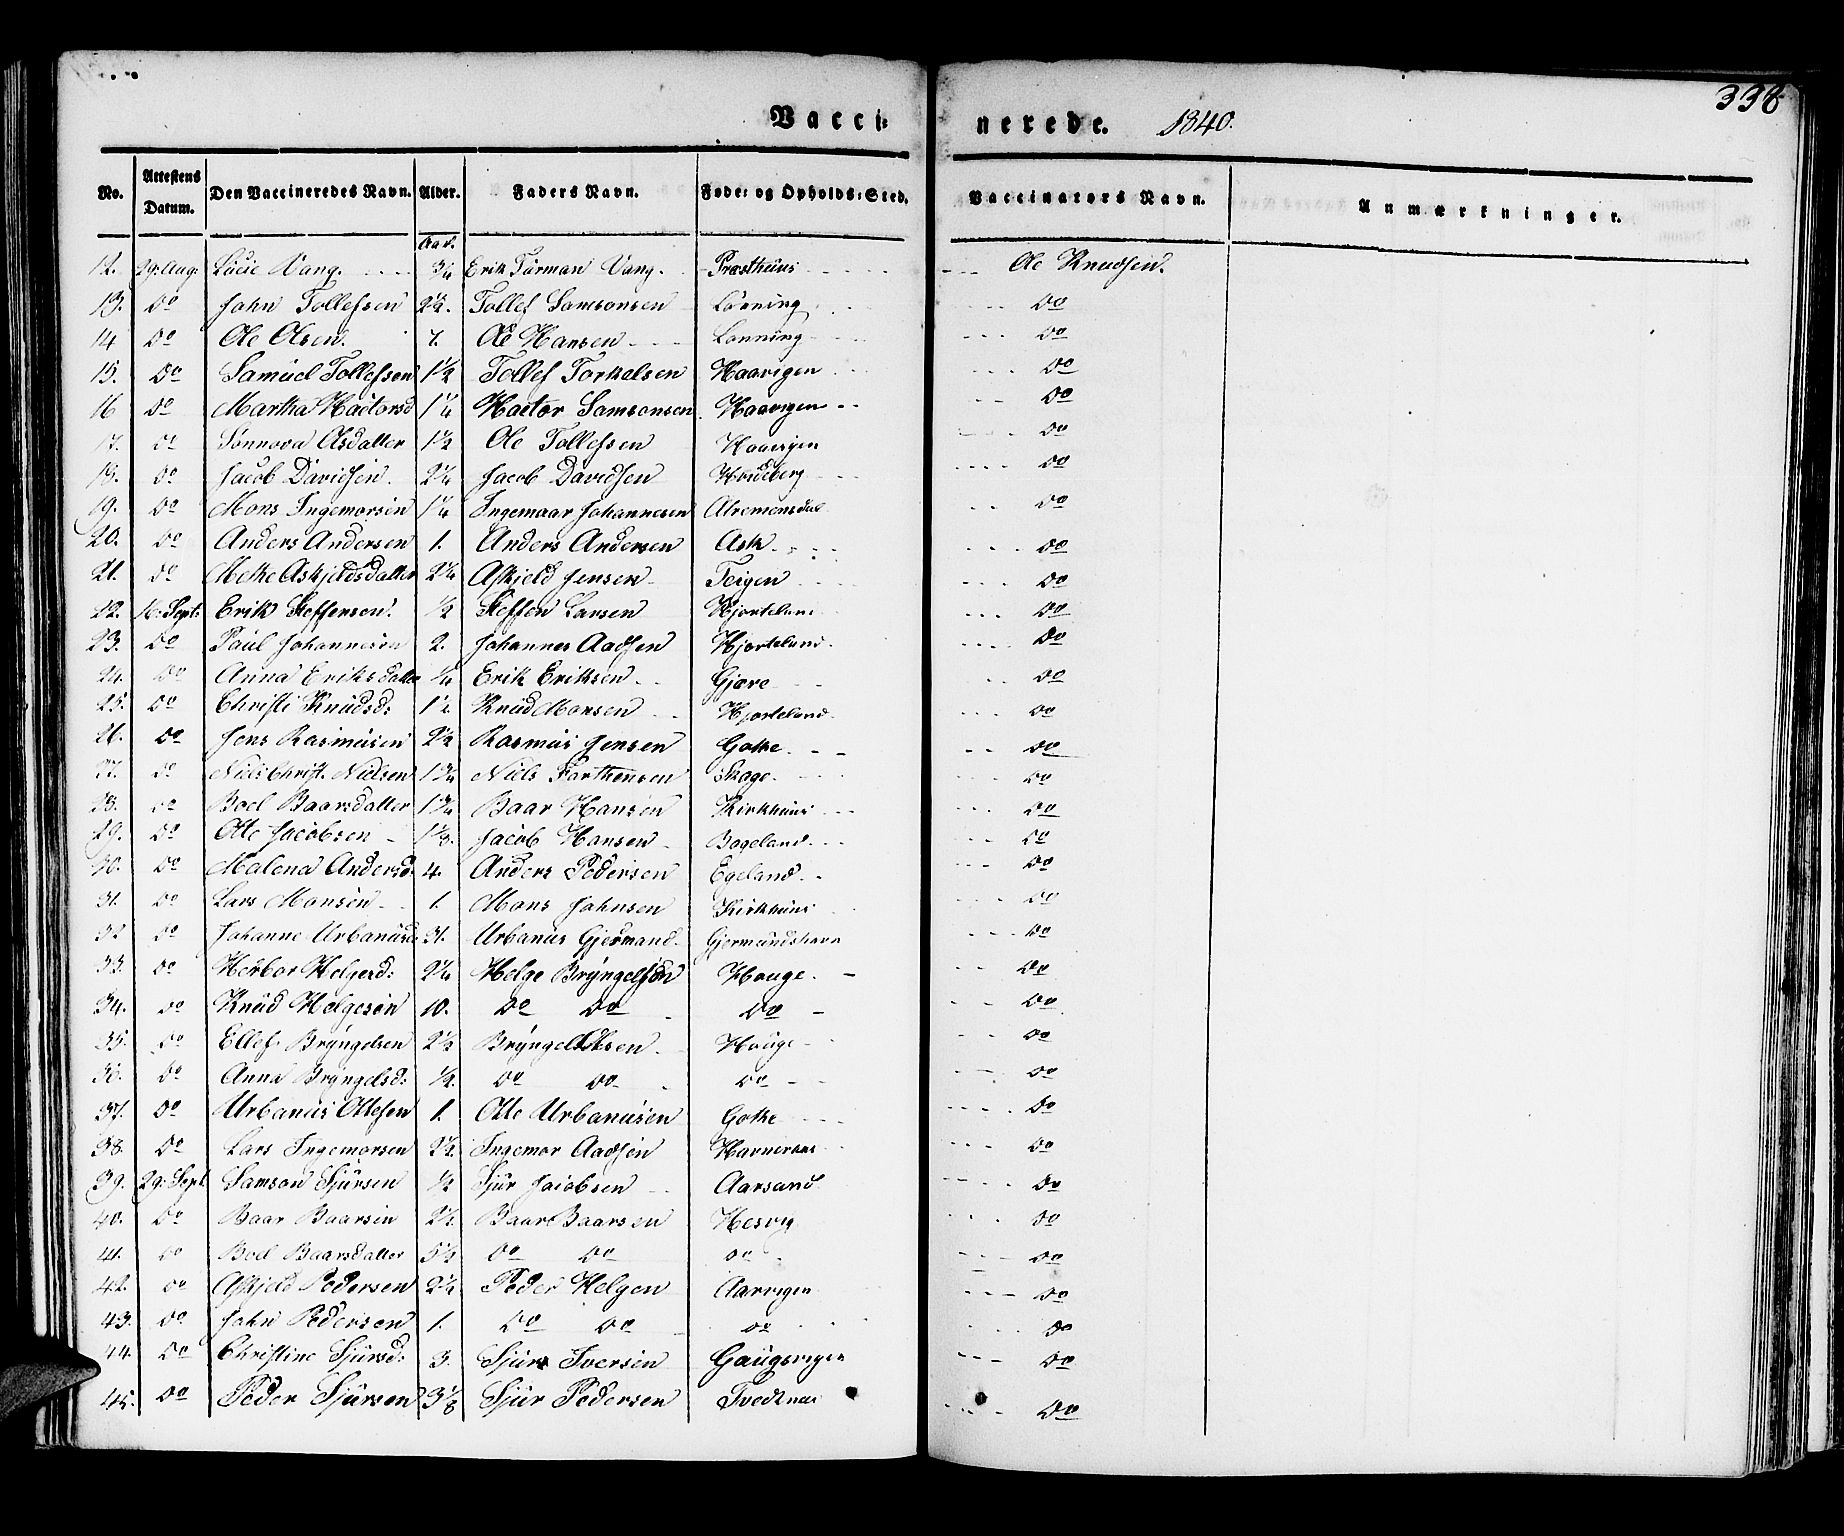 338
Vacci: nerede. 1840.
No. Attestens Datum. Den Vaccineredes Navn. Alder. Faders Navn. Føde: og Opholds: Sted. Vaccinators Navn. Anmærkninger.
Aar.
12. 29. Aug. Lucie Vang. 3/4 Erik Turman Vang. Præsthuus Ole Knudsen.
13. Do John Tollefsen 2 1/2. Tollef Samsonsen Lønning Do
14 Do Ole Olsen. 7. Ole Hansen Lønning Do
15. Do Samuel Tollefsen 1 1/2 Tollef Torkelsen Haavigen Do
16 Do Martha Hactorsd 1 1/4 Hactor Samsonsen Haavigen Do
17. Do Sønnova Olsdatter 1 1/2 Ole Tollefsen Haavigen Do
18. Do Jacob Davidsen. 2 1/4 Jacob Davidsen Do
19. Do Mons Ingemorsen 1 1/4 Ingemaar Johannesen Do
20. Do Anders Andersen 1. Anders Andersen Ask Do
21. Do Methe Askjeldsdatter 2 1/4 Askjeld Jensen Teigen Do
22. 16. Sept: Erik Steffensen. 1/2 Steffen Larsen Hjorteland Do
23. Do Paul Johannesen 2. Johannes Aadsen Hjorteland. Do
24. Do Anna Eriksdatter 1/4 Erik Eriksen Gjøre Do
25. Do Christi Knudsd: Knud Monsen Hjorteland. Do
26. Do Jens Rasmusen 2 1/2 Rasmus Jensen Gothe. Do
27. Do Niels Christ. Nielsen 1 3/4 Niels Skage. Do
28. Do Boel Baarsdatter 1 3/4 Baar Hansen Kirkhuus Do
29. Do Otte Jacobsen 1 1/3. Jacob Hansen Bogeland. Do
30. Do Malena Andersd: 4. Anders Pedersen Egeland. Do
31. Do Lars Monsen 1. Mons Johnsen Kirkhuus Do
32 Do Johanne Urbanusd: 31. Urbanus Gjermand. Gjermundshavn Do
33. Do Herbor Helgesd: 2 1/4 Helge Bryngelson Houge. Do
34. Do Knud Helgesøn 10. Do Do Do Do
35. Do Ellef Bryngelsen 2 1/2 Bryngel Olsen. Houge Do
36. Do Anna Bryngelsd: 1/2. Do Do Do Do
37. Do Urbanus Ottesen 1. Otte Urbanusen Gothe Do
38. Do Lars Ingemorsen 2 1/2. Ingemor Aadsen Do
39. 29. Sept. Samson Sjursen 1/2 Sjur Jacobsen Aarsand Do
40. Do Baar Baarsen Baar Baarsen Hesvig Do
41. Do Boel Baarsdatter 5 1/2 Do Do Do Do
42. Do Askjeld Pedersen 2 1/4 Peder Helgen Aarvigen Do
43. Do John Pedersen 1. Do Do Do Do
44. Do Christine Sjursd: 3. Sjur Iversen Gaugsvigen Do
45. Do Peder Sjursen 3 1/8 Sjur Pedersen Tvedtnæs Do